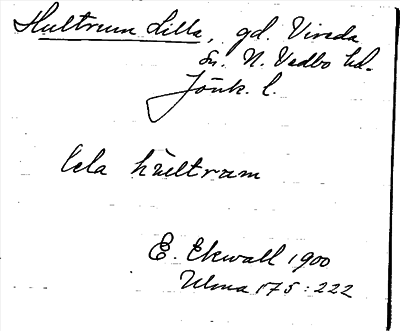 Hultrum Lilla, gd. Vireda
sn. N. Vedbo hd.
Jönk. l.
lela hùltrum
E. Ekwall 1900
Ulma 175:222